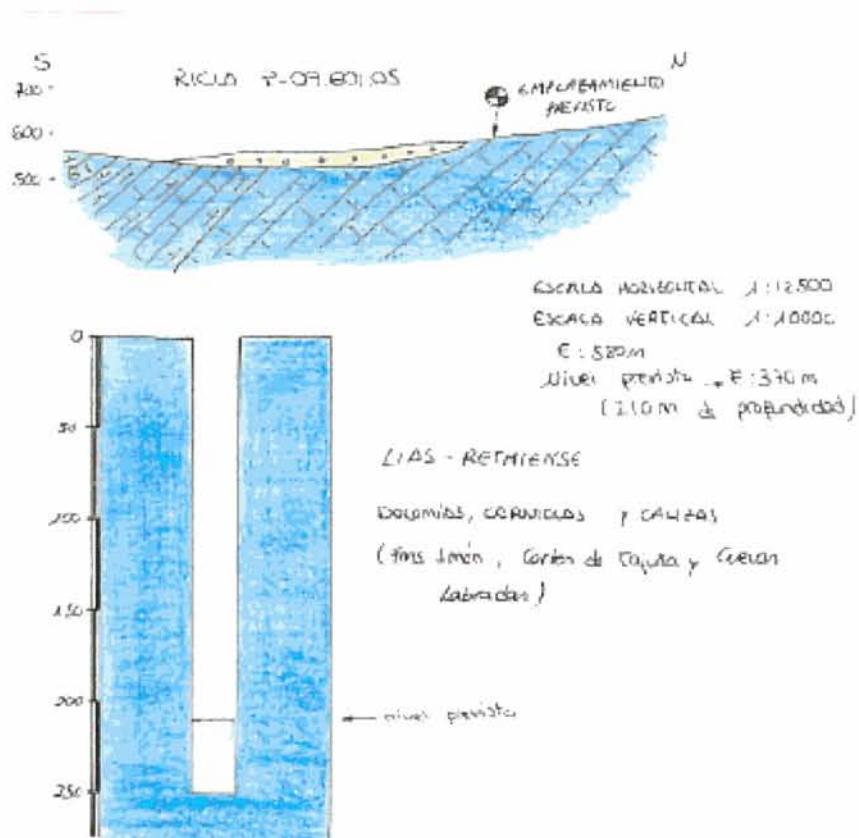 S
N
RICLA P-09.601.05
700
600
500
EMPLAZAMIENTO
PREVISTO
ESCALA HORIZONTAL 1:12500
ESCALA VERTICAL 1:10000
E: 580m
Nivel previsto E: 370 m
(210 m de profundidad)
0
50
100
150
200
250
LIAS - RETHIENSE
DOLOMIAS, CARNIOLAS Y CALIZAS
(Fms Imón, Cortes de Tajuña y Cuevas
Labradas)
nivel previsto